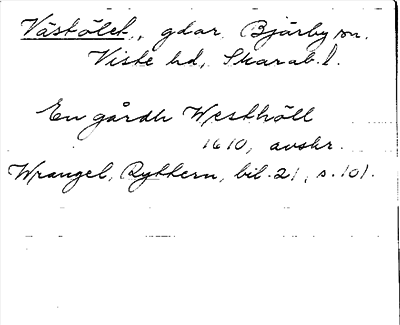 Västölet, gdar. Bjärby sn.
Viste hd, Skarab. l.
En gårdh Westhöll
1610, avskr.
Wrangel, Ryttern, bil. 21, s. 101.